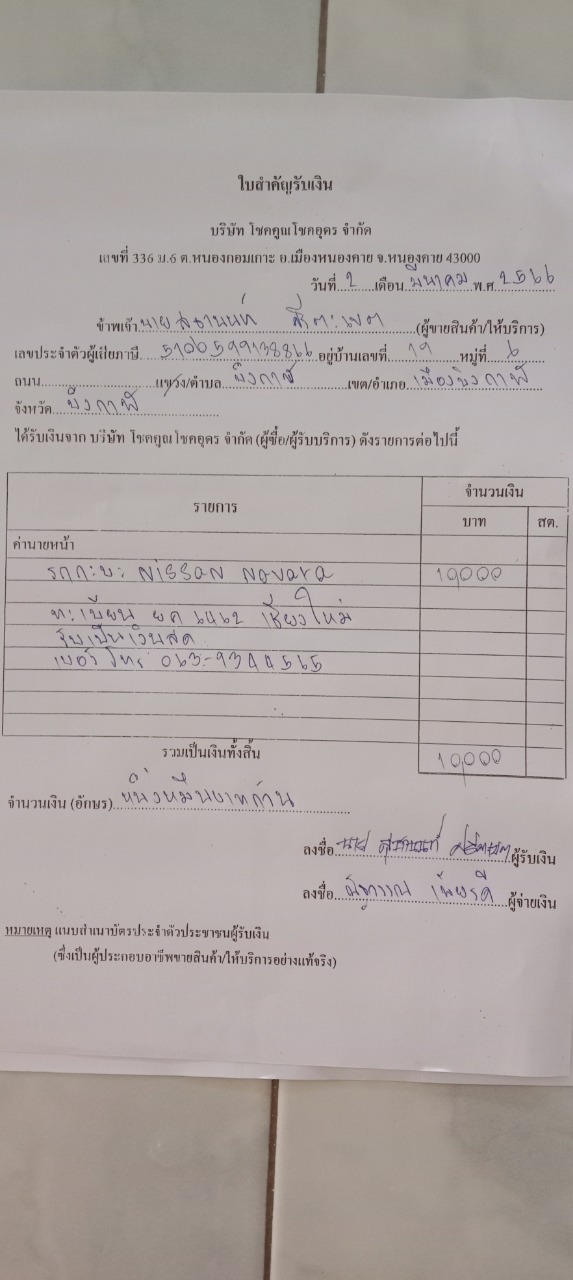 ใบสำคัญรับเงิน
บริษัท โชคคูณโชคอุดร จำกัด
เลขที่ 336 ม.6 ต.หนองกอมเกาะ อ.เมืองหนองคาย จ.หนองคาย 43000
วันที่ 2 เดือน มีนาคม พ.ศ 2566
ข้าพเจ้า นาย (ผู้ขายสินค้า/ให้บริการ)
เลขประจำตัวผู้เสียภาษี อยู่บ้านเลขที่ 19 หมู่ที่ 6
ถนน แขวง/ตำบล บึงกาฬ เขต/อำเภอ เมืองบึงกาฬ
จังหวัด บึงกาฬ
ได้รับเงินจาก บริษัท โชคคูณโชคอุดร จำกัด (ผู้ซื้อ/ผู้รับบริการ) ดังรายการต่อไปนี้
รายการ จำนวนเงิน
บาท สต.
ค่านายหน้า
รถกะบะ NISSAN Navara 10,000
ทะเบียน ยค 6462 เชียงใหม่
รับเป็นเงินสด
เบอร์โทร 063-9344565
รวมเป็นเงินทั้งสิ้น 10,000
จำนวนเงิน (อักษร) หนึ่งหมื่นบาทถ้วน
ลงชื่อ นาย ผู้รับเงิน
ลงชื่อ ผู้จ่ายเงิน
หมายเหตุ แนบสำเนาบัตรประจำตัวประชาชนผู้รับเงิน
(ซึ่งเป็นผู้ประกอบอาชีพขายสินค้า/ให้บริการอย่างแท้จริง)